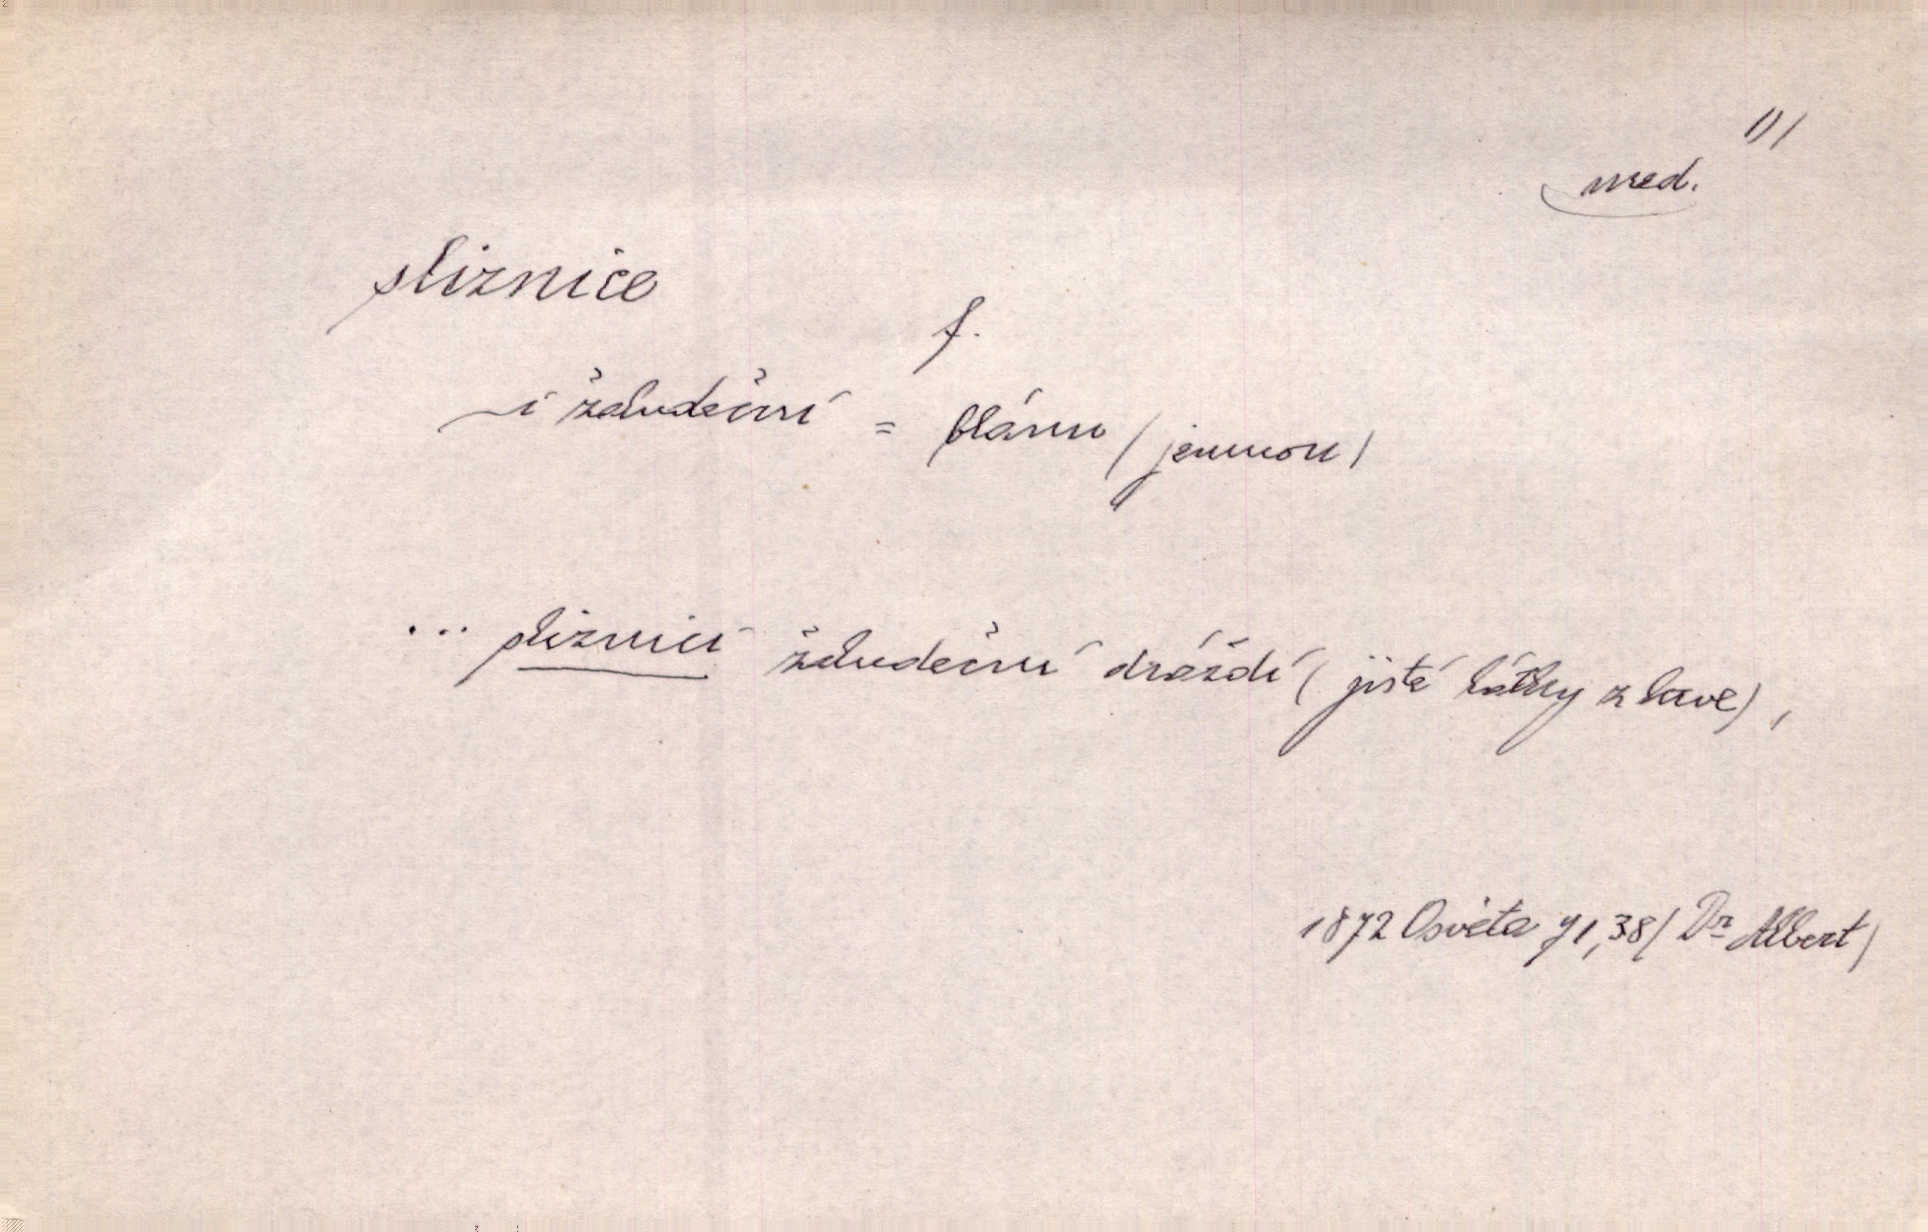 med.
sliznice
f.
~i žaludeční = blánu (jemnou)
... sliznici žaludeční dráždí (jisté látky z lave),
1872 Osvěta 71,38 (Dr Albert)